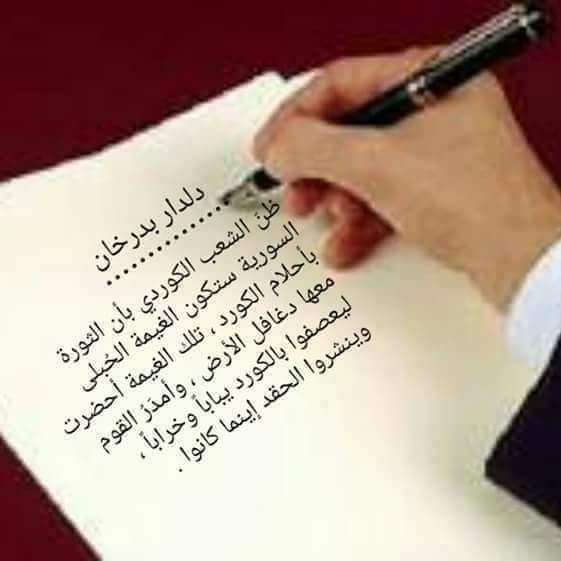 دلدار بدرخان
ظنّ الشعب الكوردي بأن الثورة
السورية ستكون الغيمة الحُبلى
بأحلام الكورد ، تلك الغيمة أحضرت
معها دغافل الأرض ، وأمدَرُ القوم
ليعصفوا بالكورد يباباً وخراباً ،
وينشروا الحقد إينما كانوا .